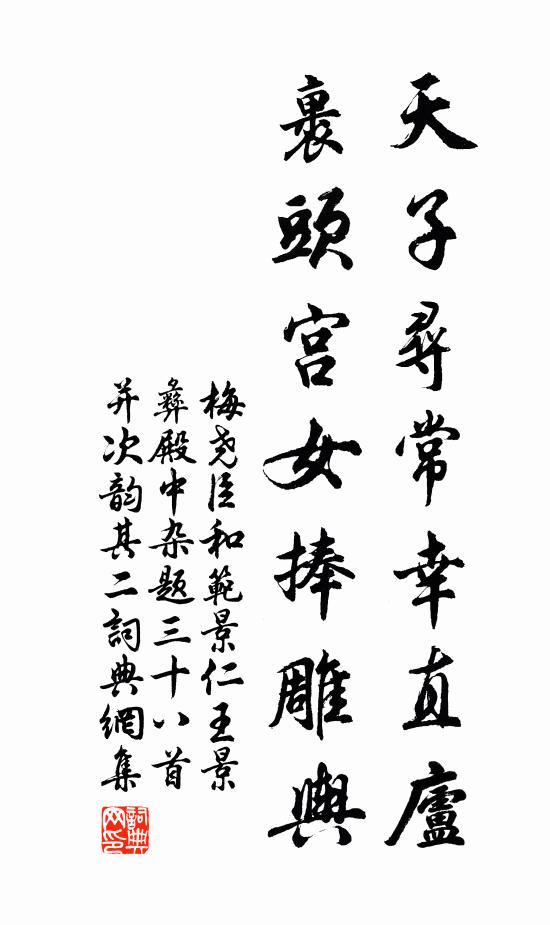 天子尋常幸直廬
裹頭宮女捧雕輿
梅尧臣和範景仁王景
彝殿中杂题三十八首
并次韵其二詞典網集
詞典网印